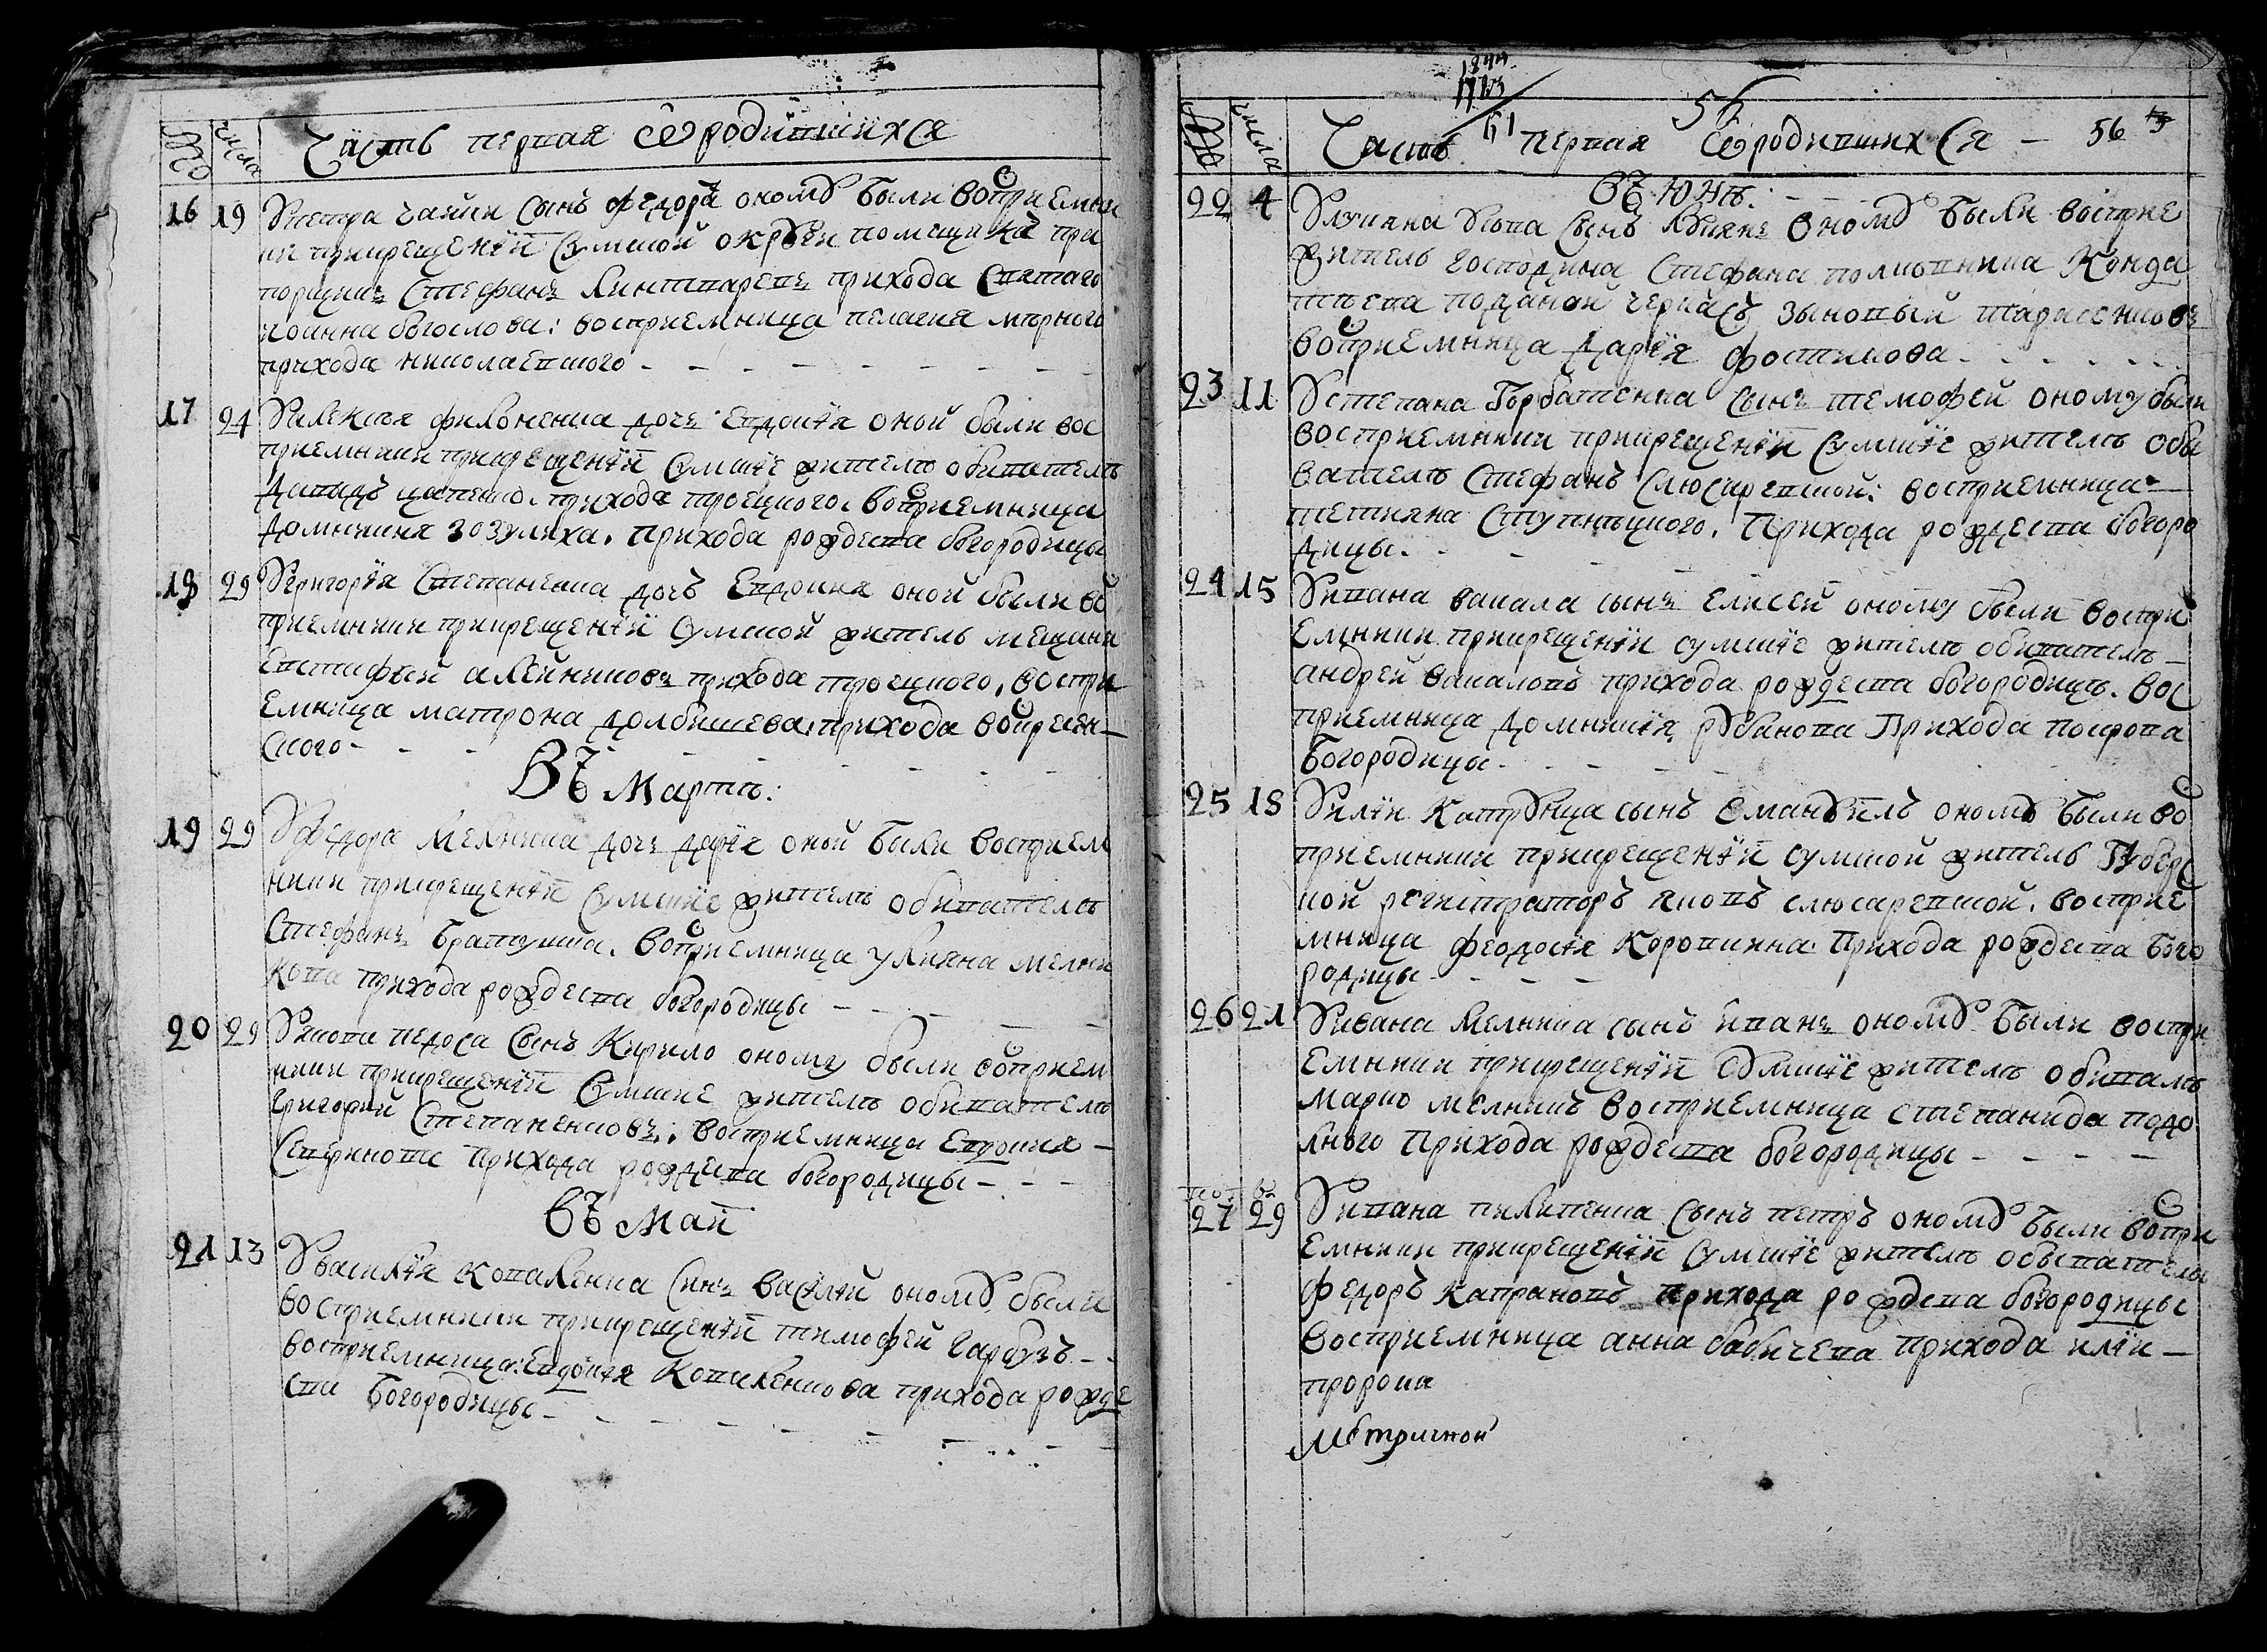 Часть первая ѡ родившихся
16 19 Ȣ петра чайки сынъ федоръ ономȣ были воспрiемни
ки прикрещенiи сумской окрȣги помещика при
торщикъ Стефанъ прихода Святаго
иоанна богослова: восприемница пелагея мѣрного
прихода николаевского
17 24 Ȣ алексѣя филоненка дочъ Евдокiя оной были вос
приемники прикрещенiи Сумскiе житель обиватель
Давидъ цапенко. прихода троецкого. восприемница
домникия зозулиха. Прихода рождества богородицы
18 29 Ȣ григорiя Степаненка дочъ Евдокия оной были вос
приемники прикрещенiи Сумской житель мещанин
Евстафѣй алейниковъ прихода троецкого, воспри
Емница матрона долбишева прихода воскресен
ского
Въ Мартѣ:
19 29 Ȣ федора Мелника дочъ дарiя оной были восприем
ники прикрещенiи Сумскiе житель обиватель
Стефанъ братушка. Восприемница улияна мелни
кова прихода рождества богородицы
20 29 Ȣ якова педоса Сынъ Кирило оному были восприем
ники прикрещенiи Сумские житель обиватель
Григорий Степаненковъ. восприемница Евдокия
прихода рождества богородицы
Въ Маiи
21 13 Ȣ василiя Коваленка Синъ василiй ономȣ были
восприемники прикрещенiи тимофей гарбузъ
восприемница: Евдокiя Коваленкова прихода рожде
ства Богородицы
51 56
Часть первая ѡ родившихся 56
Въ Юнѣ:
22 4 Ȣ лукиана сынъ ономȣ были воспрiе
житель господина Стефана полковника Конда
тѣева поданой черкасъ зѣновѣй тарасенковъ
восприемница Дарiя фостикова
23 11 Ȣ степана Горбатенка сынъ темофей оному были
восприемники прикрещенiи Сумскiе житель обы
ватель Стефанъ Слюсаревской: восприемница
тетияна Ступницкого. Прихода рождества богоро
дицы.
24 15 Ȣ ивана вакала сынъ Елисей оному были воспри
Емники прикрещенiи сумскiе житель обиватель
андрей вакаловъ прихода рождества богородицы. вос
приемница домникiя рȣбанова Прихода покрова
Богородицы
25 18 Ȣ илiи сынъ Емануилъ ономȣ были вос
приемники прикрещенiи сумской житель Губерс
кой регистраторъ яковъ слюсаревской. восприе
мница феодосiя Коровкина Прихода рождества Бого
родицы
26 21 Ȣ ивана Мелника сынъ иванъ ономȣ были воспри
Емники прикрещенiи Сȣмскiе житель обиваль
марко мелникъ восприемница степанида подо
лного Прихода рождества богородицы
27 29 Ȣ ивана пилипенка сынъ петръ ономȣ были воспри
Емники прикрещенiи Сумскiе житель обыватель
федоръ капрановъ прихода рождества богородицы
восприемница анна бабичева прихода илiи
пророка
Метричной